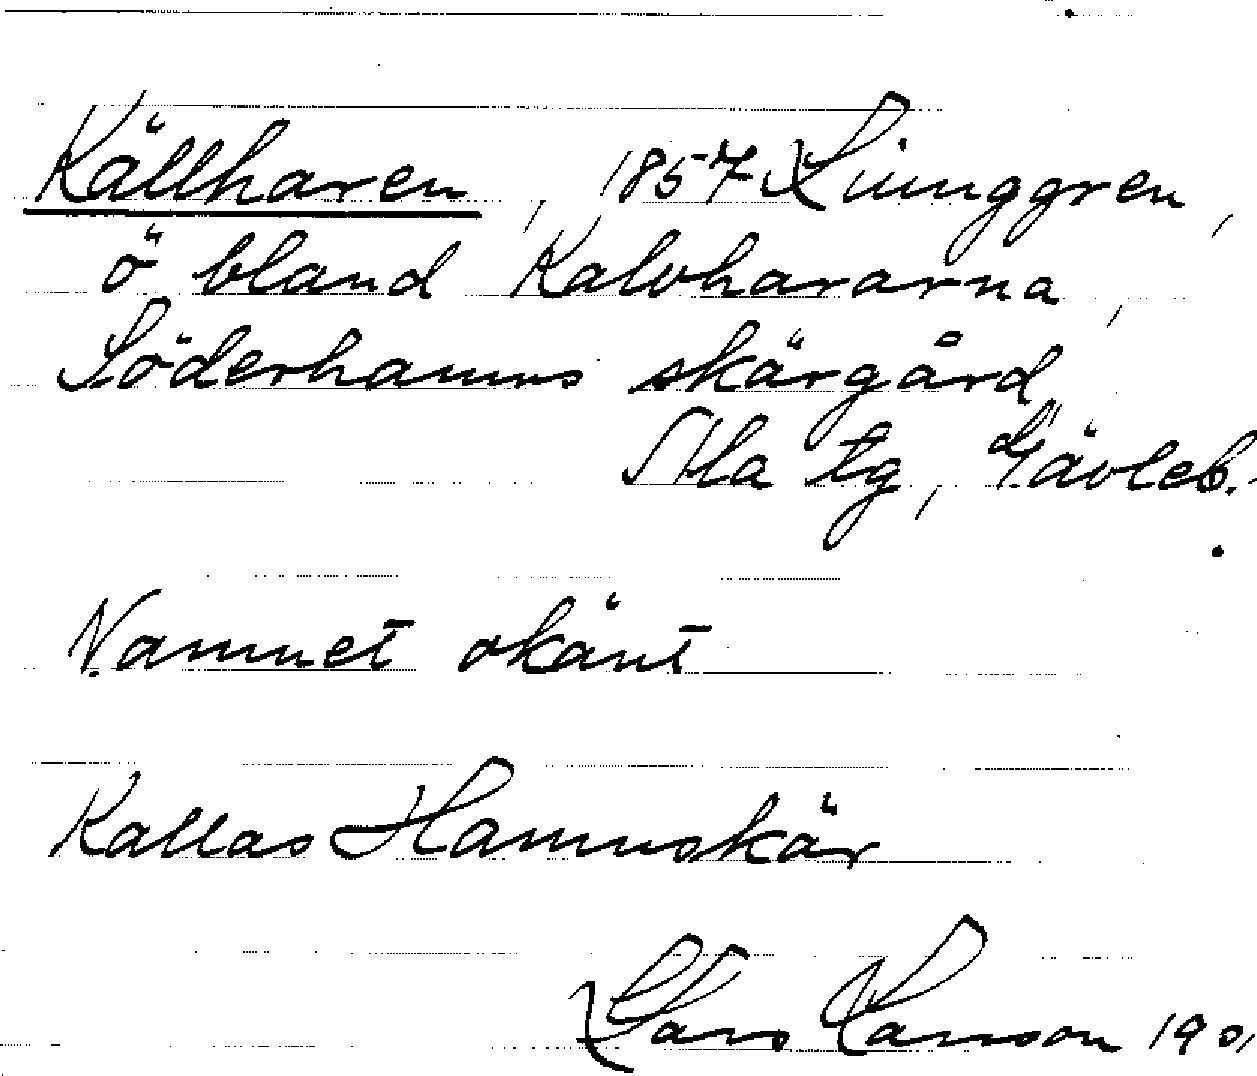 Källharen, 1857 Ljunggren,
ö bland Kalvhararna,
Söderhamns skärgård
Ala tg, Gävleb.
Namnet okänt
Kallas Hamnskär
Lars Larsson 190